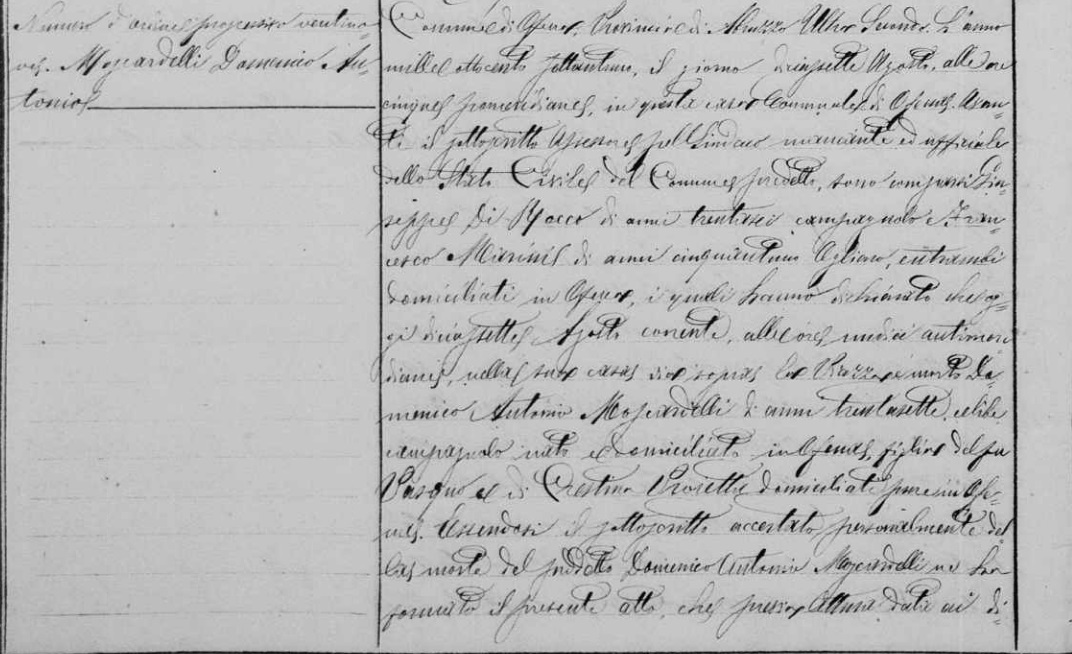 Numero d'ordine progressivo ventino-
ve. Moscardelli Domenico An-
tonio
Comune di Ofena, Provincia di Abruzzo Ultra Secondo. L'anno
mille ottocento settantuno, il giorno diciassette Agosto, alle ore
cinque pomeridiane, in questa casa Comunale di Ofena. Avan-
ti il sottoscritto Assessore pel Sindaco mancante ed uffiziale
dello Stato Civile del Comune predetto, sono comparsi Giu-
seppe Di Rocco di anni trentasei campagnolo e Fran-
cesco Marini di anni cinquantuno, entrambi
domiciliati in Ofena, i quali hanno dichiarato che og-
gi diciassette Agosto corrente, alle ore undici antimeri
diane, nella sua casa via la Piazza è morto Do-
menico Antonio Moscardelli di anni trentasette, celibe
campagnolo nato e domiciliato in Ofena, figlio del fu
e di domiciliati pure in Ofe-
na. Essendosi il sottoscritto accertato personalmente del
la morte del predetto Domenico Antonio Moscardelli ne ha
formato il presente atto, che previa lettura datane ai di-